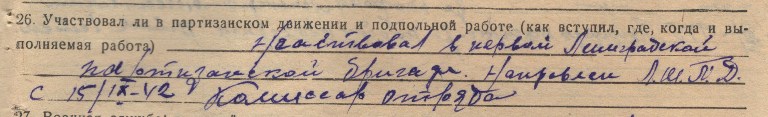 26. Участвовал ли в партизанском движении и подпольной работе (как вступил, где, когда и вы-
полняемая работа) Участвовал в первой Ленинградской
партизанской бригаде. Направлен Л.Ш.П.Д.
с 15/IX-42 Комиссар отряда
27. Военная служба